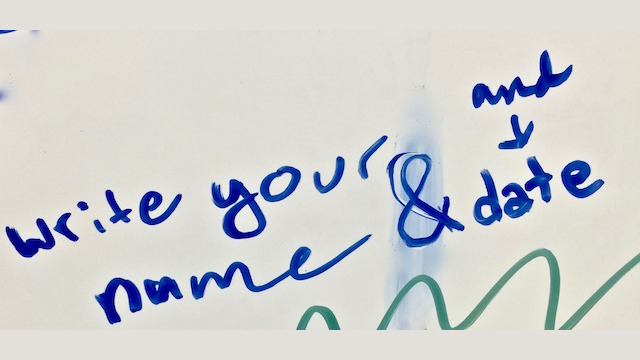 and
write your & date
name